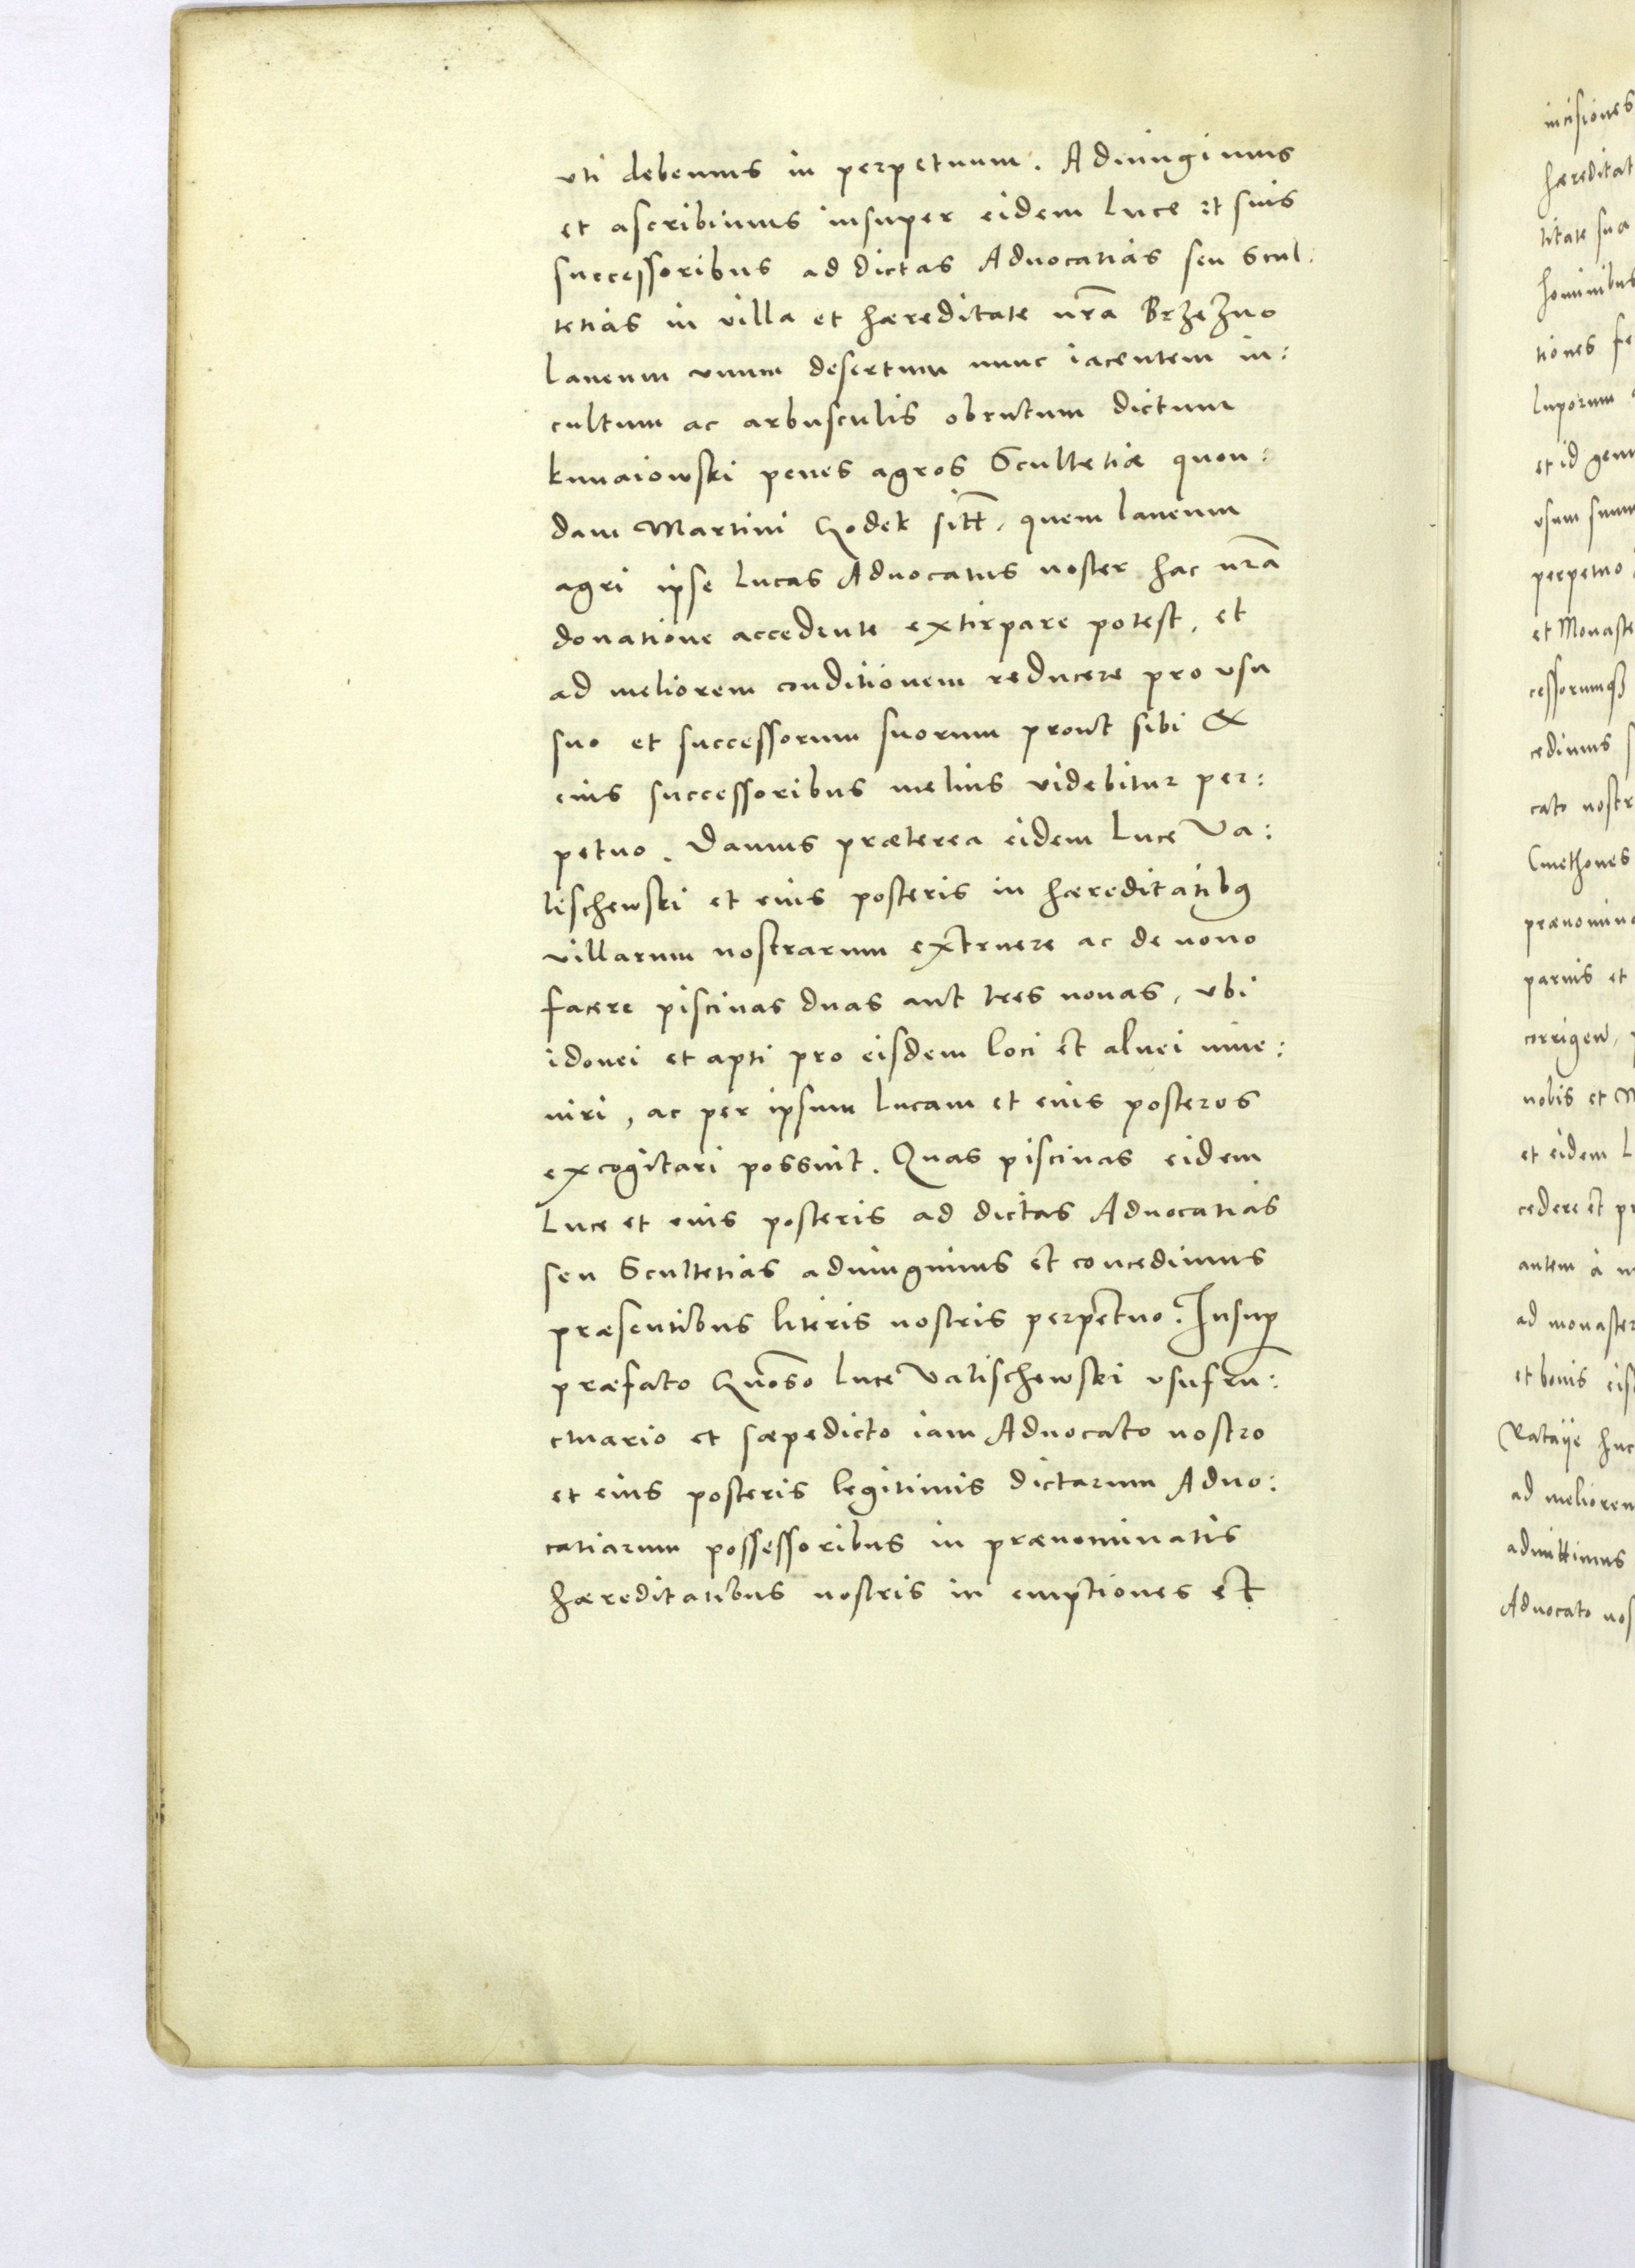 vti debemus in perpetuum. Adiungimus
et ascribimus insuper eidem Luce et suis
successoribus ad dictas Aduocatias seu Scul:
tetias in villa et hæreditate nr̃a Brzezno
Laneum vnum desertum nunc iacentem in:
cultum ac arbusculis obrutum dictum
kunaiowski penes agros Scultetiæ quon:
dam Martini Godek sitt̃, quem laneum
agri ipse Lucas Aduocatus noster hac nr̃a
donatione accedente extirpare potest, et
ad meliorem conditionem reducere pro vsu
suo et successorum suorum prout sibi &
eius successoribus melius videbitur per:
petuo. Damus præterea eidem Luce Va:
lischewski et eius posteris in hæreditatibꝫ
villarum nostrarum extruere ac de nouo
facere piscinas duas aut tres nouas, vbi
idonei et apti pro eisdem loci et aluei inue:
niri, ac per ipsum Lucam et eius posteros
excogitari possint. Quas piscinas eidem
Luce et eius posteris ad dictas Aduocatias
seu Scultetias adiungimus et concedimus
præsentibus literis nostris perpetuo. Insuꝑ
præfato Gñoso Luce Valischewski vsufru:
ctuario et sæpedicto iam Aduocato nostro
et eius posteris legitimis dictarum Aduo:
catiarum possessoribus in prænominatis
hæreditatibus nostris in emptiones et
incisiones
hæreditat
titate sua
hominibus
tiones fe
luporum
et id gen
vsum suum
perpetuo
et Monaste
cessorumqꝫ
cedimus
cato nostr
Cmethones
prænomina
paruis et
corrigen,
nobis et M
et eidem L
cedere et pr
autem à n
ad monaster
et bonis eis
Rataije huc
ad meliorem
admittimus
Aduocato nos